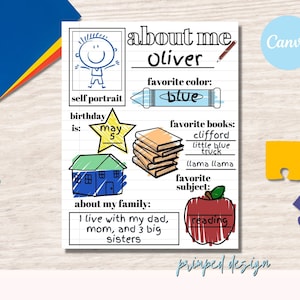 about me
Oliver
Canva
self portrait
favorite color:
blue
birthday
is:
may
5
favorite books:
clifford
little blue
truck
llama llama
favorite
subject:
reading
about my family:
I live with my dad,
mom, and 3 big
sisters
primped design